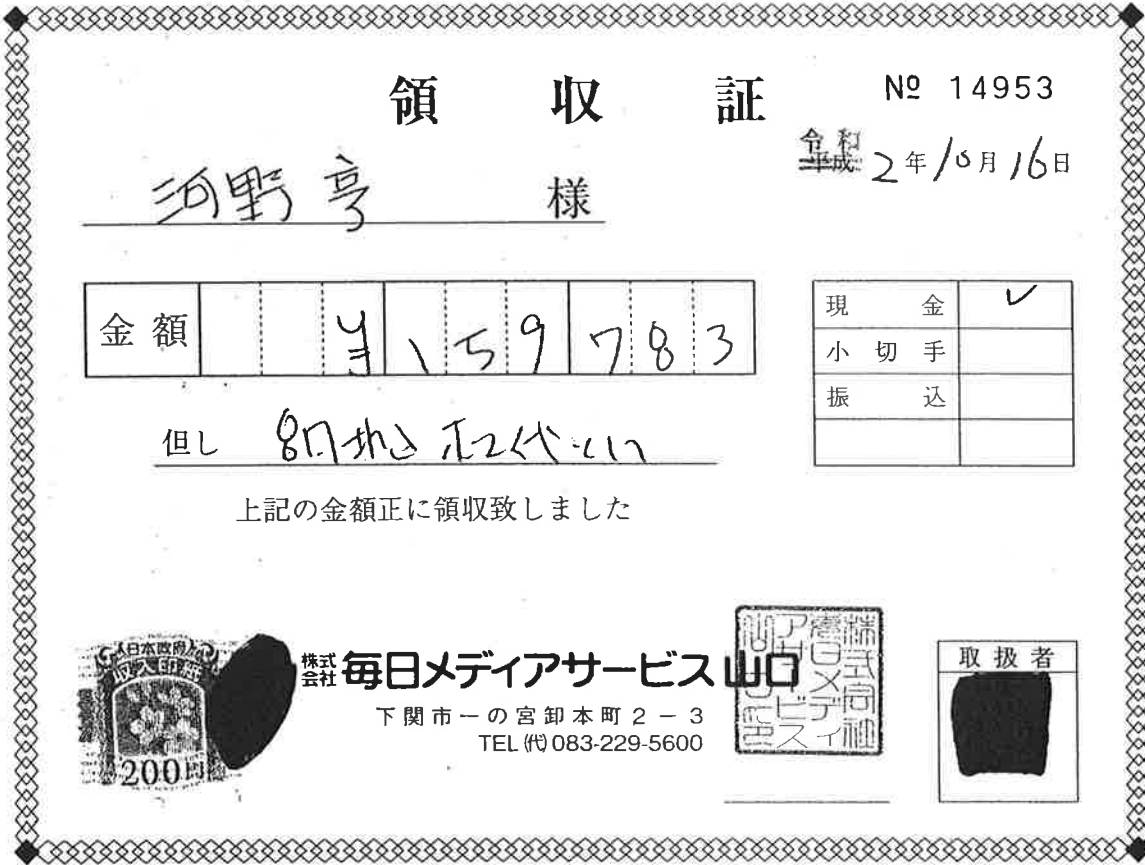 領収証
№ 14953
令和
平成 2年10月16日
河野 亨 様
金額 ¥159783
現金 ✓
小切手
振込
但し 代
上記の金額正に領収致しました
日本政府
収入印紙
200円
株式会社 毎日メディアサービス山口
下関市一の宮卸本町2−3
TEL(代)083-229-5600
取扱者